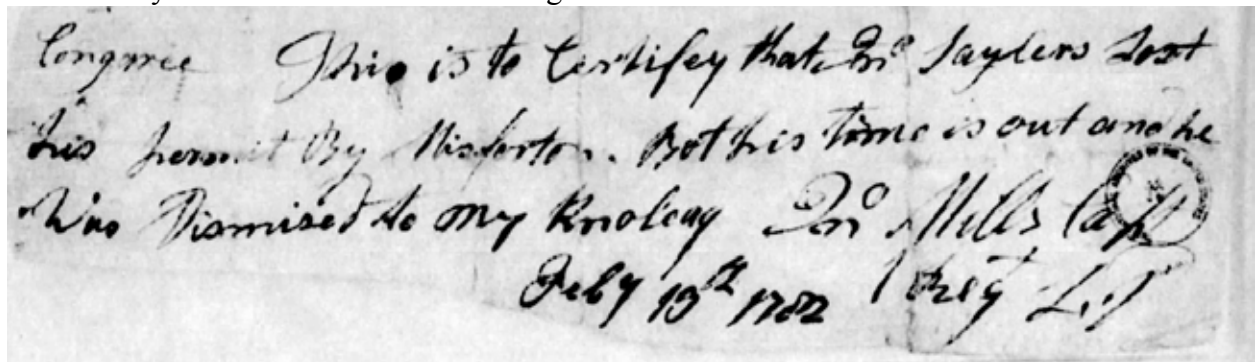 Congree This is to Certifey that Jno Saylers Lost
his permit By Misforton. Bot his time is out and he
Was Dismised to my Knoleag Jno Mills Capt
Feby 19th 1782 Regt L.D